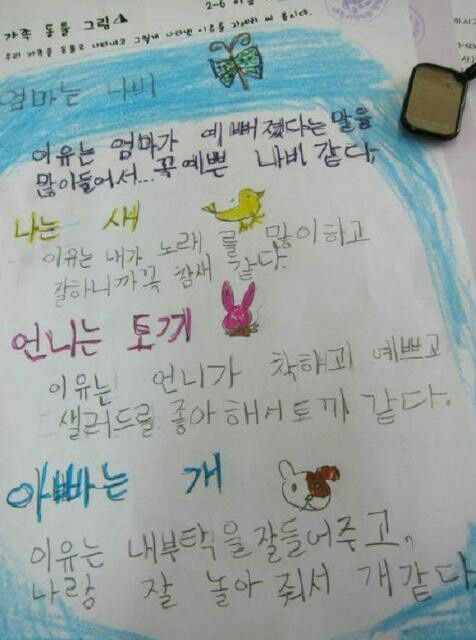 가족 동물 그림
2-6
우리 가족을 동물로 나타내고 그렇게 나타낸 이유를 자세히 써 봅시다.
엄마는 나비
이유는 엄마가 예뻐졌다는 말을
많이들어서... 꼭 예쁜 나비 같다,
나는 새
이유는 내가 노래를 많이하고
잘하니까꼭 참새 같다.
언니는 토끼
이유는 언니가 착해괴 예쁘고
샐러드를 좋아해서토끼 같다.
아빠는 개
이유는 내부탁을잘들어주고,
나랑 잘 놀아 줘서 개같다